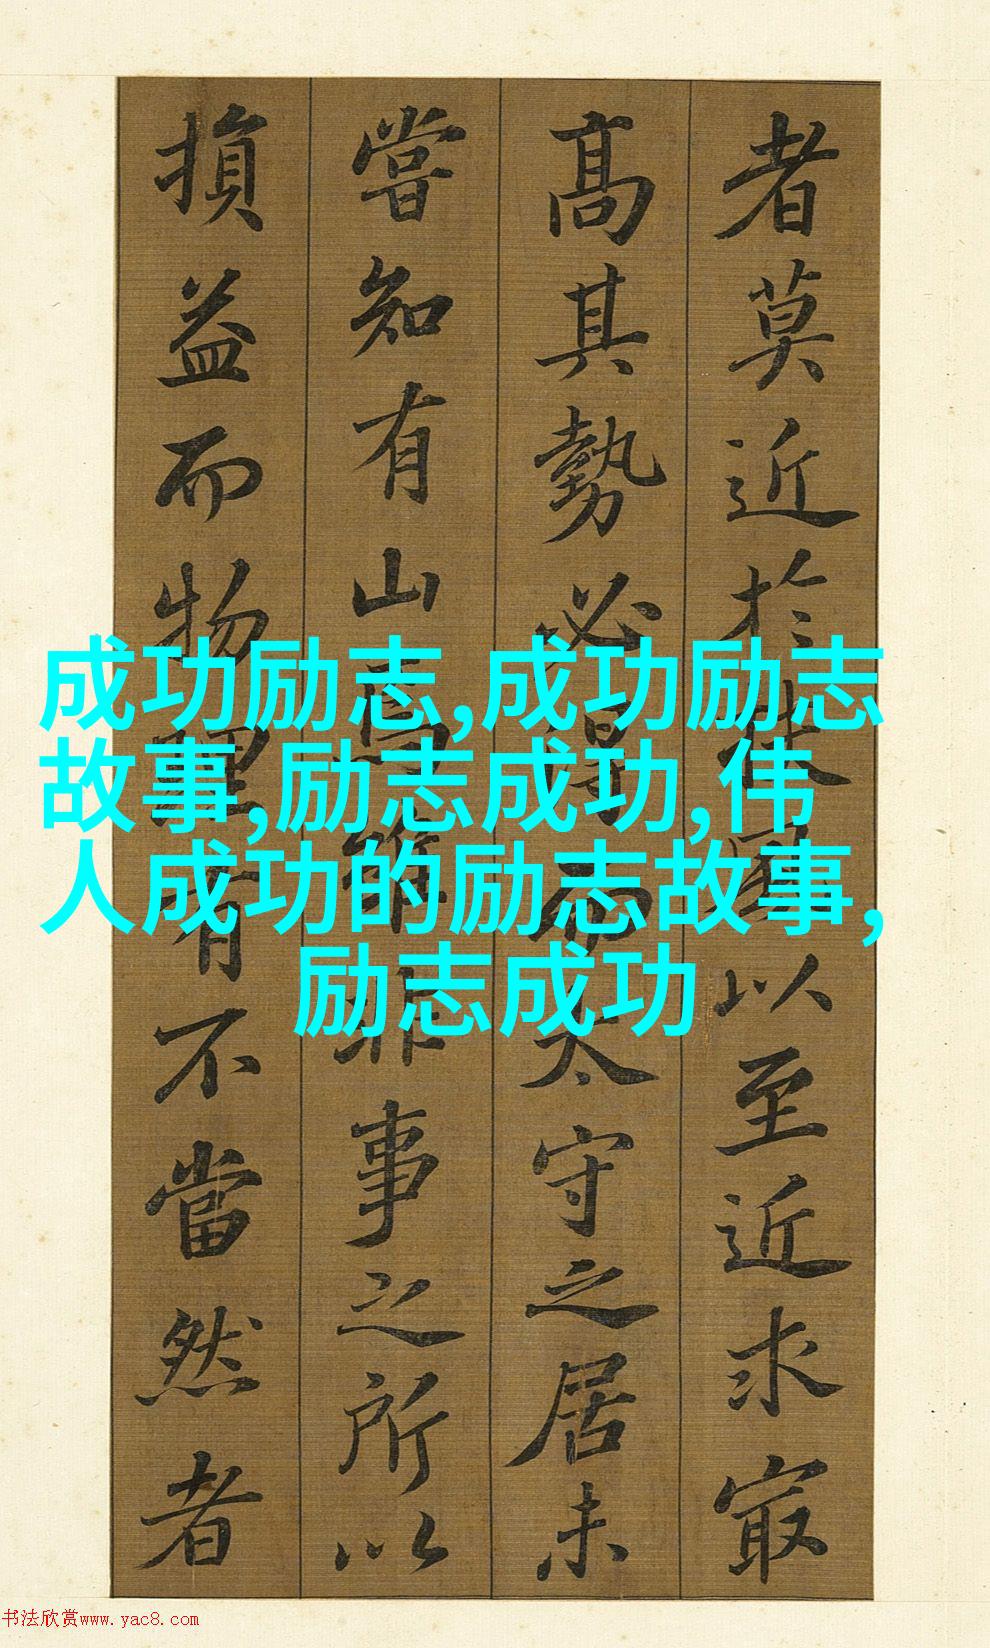 者莫近於扶風以至近求㝡
髙其勢必得而太守之居未
嘗知有山焉雖非事之所以
損益而物理有不當然者
成功励志,成功励志
故事,励志成功,伟
人成功的励志故事,
励志成功
书法欣赏www.yac8.com